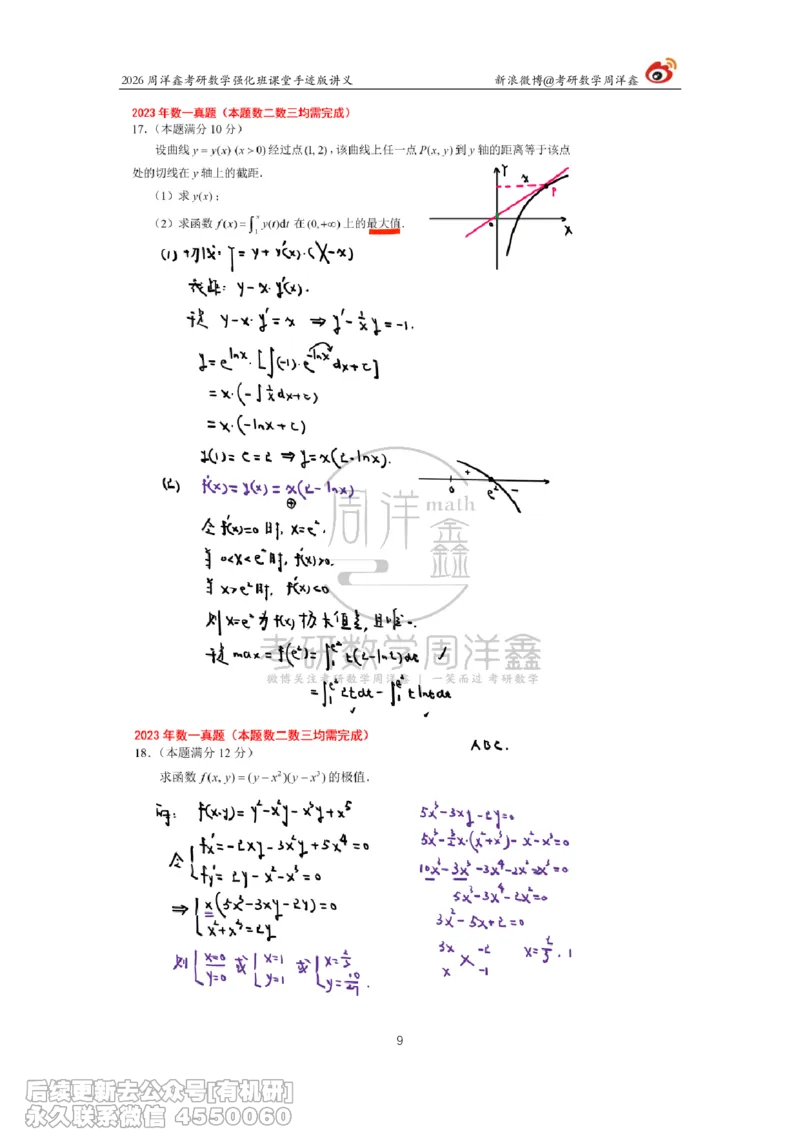 2026 周洋鑫考研数学强化班课堂手迹版讲义 新浪微博@考研数学周洋鑫
2023 年数一真题（本题数二数三均需完成）
17.（本题满分 10 分）
设曲线 y = y(x) (x > 0) 经过点(1, 2)，该曲线上任一点 P(x, y) 到 y 轴的距离等于该点
处的切线在 y 轴上的截距.
（1）求 y(x)；
（2）求函数 f(x) = ∫₁ˣ y(t)dt 在 (0, +∞) 上的最大值.
Y
x
P
o
X
(1) 切线: Y = y + y'(x)·(X-x)
截距: y - x·y'(x).
说 y - x·y' = x ⇒ y' - 1/x y = -1.
y = e^{lnx}·[∫(-1)·e^{-lnx}dx + c]
= x·(-∫1/x dx + c)
= x·(-lnx + c)
y(1) = c = 2 ⇒ y = x(2-lnx).
(2) f'(x) = y(x) = x(2-lnx)
⊕
+
0
e²
-
令 f'(x)=0 时, x=e².
当 0<x<e² 时, f'(x)>0.
当 x>e² 时, f'(x)<0
则 x=e² 为 f(x) 极大值点, 且唯一.
max = f(e²) = ∫₁^{e²} t(2-lnt)dt ✓
= ∫₁^{e²} 2tdt - ∫₁^{e²} t lnt dt
周洋鑫
math
考研数学周洋鑫
微博关注考研数学周洋鑫 | 一笑而过 考研数学
2023 年数一真题（本题数二数三均需完成）
ABC.
18.（本题满分 12 分）
求函数 f(x, y) = (y - x²)(y - x³) 的极值.
f(x,y) = y² - x²y - x³y + x⁵
令 { fx' = -2xy - 3x²y + 5x⁴ = 0
fy' = 2y - x² - x³ = 0
⇒ { x(5x³ - 3xy - 2y) = 0
x² + x³ = 2y
则 { x=0 y=0 或 { x=1 y=1 或 { x=2/3 y=10/27 .
5x³ - 3xy - 2y = 0
5x³ - 3/2 x·(x²+x³) - x² - x³ = 0
10x³ - 3x³ - 3x⁴ - 2x² - 2x³ = 0
5x³ - 3x⁴ - 2x² = 0
3x² - 5x + 2 = 0
3x -2
x -1
x = 2/3 , 1
9
后续更新去公众号[有机研]
永久联系微信 4550060